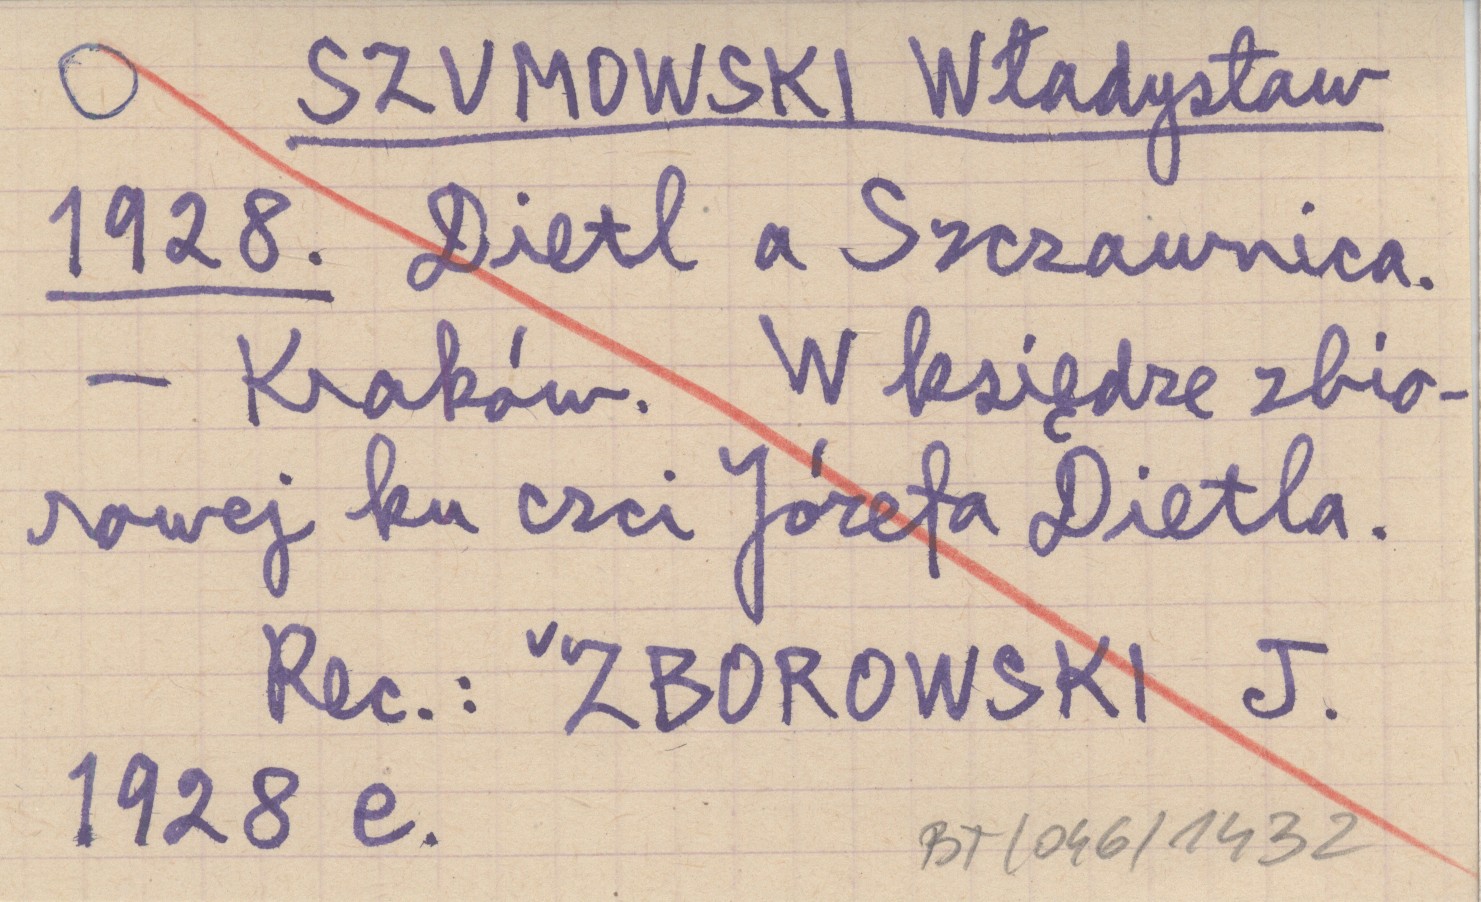 SZUMOWSKI Władysław
1928. Dietl a Szczawnica.
– Kraków. W księdze zbio-
rowej ku czci Józefa Dietla.
Rec.: ZBOROWSKI J.
1928 e.
BT/046/1432